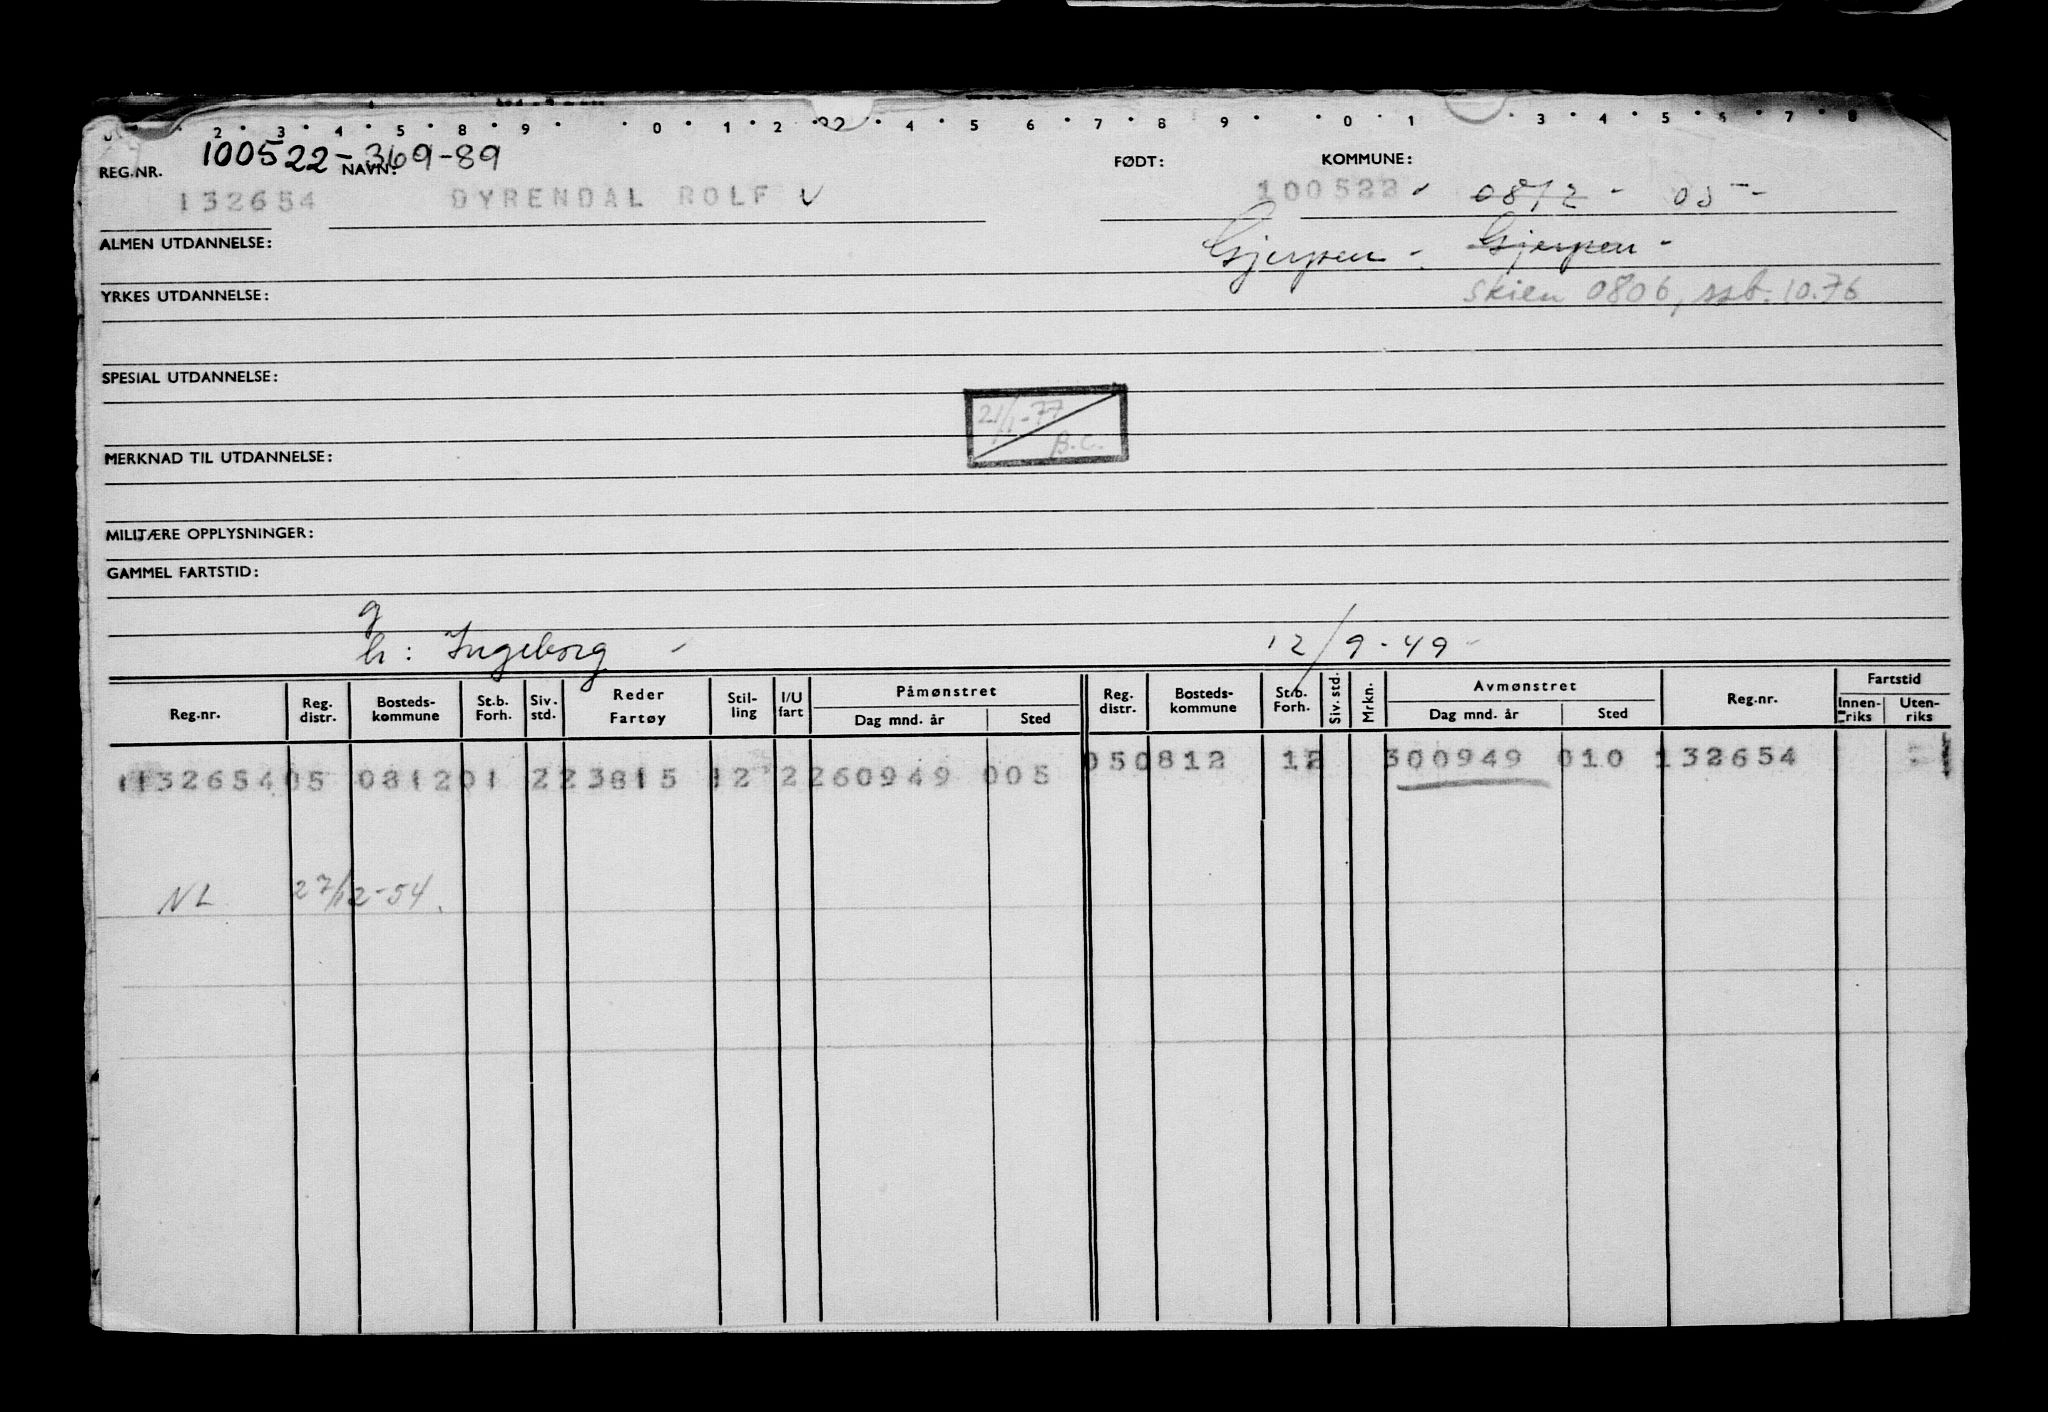 2 3 4 5 8 9 0 1 2 4 5 6 7 8 9 0 1 3 4 5 6 7 8
100522-369-89
REG.NR. NAVN: FØDT: KOMMUNE:
132654 DYRENDAL ROLF V 100522 - 0872 - 05 -
ALMEN UTDANNELSE: Gjerpen - Gjerpen -
YRKES UTDANNELSE: Skien 0806, ssb. 10.76
SPESIAL UTDANNELSE:
21/1-77
B.C.
MERKNAD TIL UTDANNELSE:
MILITÆRE OPPLYSNINGER:
GAMMEL FARTSTID:
g
h: Ingeborg - 12/9-49 -
Reg.nr. Reg. distr. Bosteds-kommune St.b. Forh. Siv. std. Reder Fartøy Stil-ling I/U fart Påmønstret Dag mnd. år Sted Reg. distr. Bosteds-kommune St.b. Forh. Siv. std. Mrkn. Avmønstret Dag mnd. år Sted Reg.nr. Fartstid Innen-riks Uten-riks
113265405 081201 223815 12 2260949 005 050812 12 300949 010 132654
NL 27/12-54.